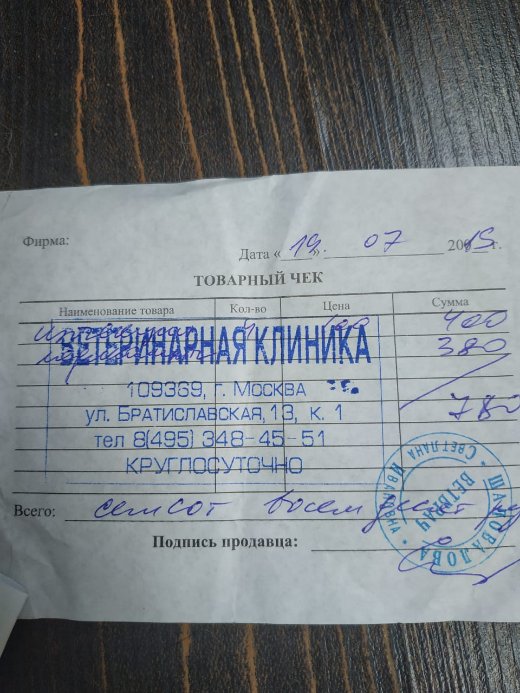 Фирма:
Дата «19» 07 2015 г.
ТОВАРНЫЙ ЧЕК
Наименование товара Кол-во Цена Сумма
400
380
ВЕТЕРИНАРНАЯ КЛИНИКА
109369, г. МОСКВА
780
ул. БРАТИСЛАВСКАЯ, 13, к. 1
тел 8(495) 348-45-51
КРУГЛОСУТОЧНО
Всего: семсот восемдесят
Подпись продавца:
ШАПОВАЛОВА СВЕТЛАНА ИВАНОВНА
ВЕТВРАЧ